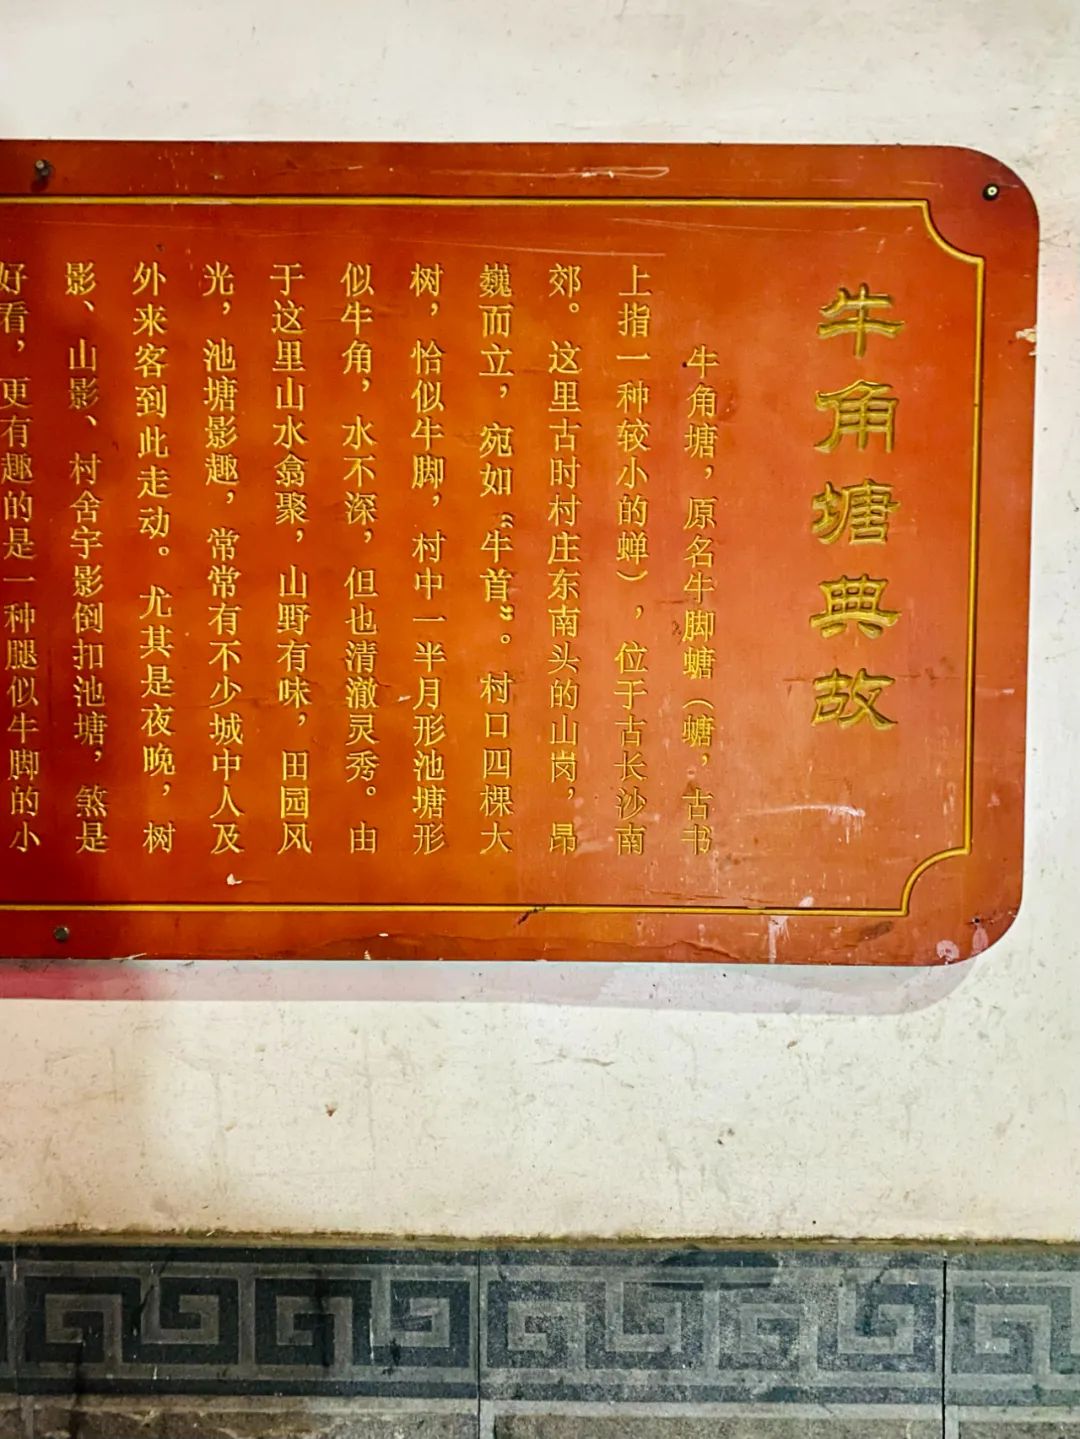 牛角塘典故
牛角塘，原名牛脚螗（螗，古书
上指一种较小的蝉），位于古长沙南
郊。这里古时村庄东南头的山岗，昂
巍而立，宛如“牛首”。村口四棵大
树，恰似牛脚，村中一半月形池塘形
似牛角，水不深，但也清澈灵秀。由
于这里山水翕聚，山野有味，田园风
光，池塘影趣，常常有不少城中人及
外来客到此走动。尤其是夜晚，树
影、山影、村舍宇影倒扣池塘，煞是
好看，更有趣的是一种腿似牛脚的小